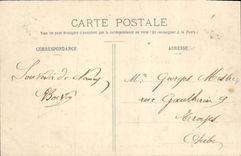 CARTE POSTALE
Tous les pays étrangers n'acceptent pas la correspondance au verso (Se renseigner à la Poste)
CORRESPONDANCE
ADRESSE
Souvenir de Nancy
Mr Georges
rue Gauthier 9
Troyes
Aube